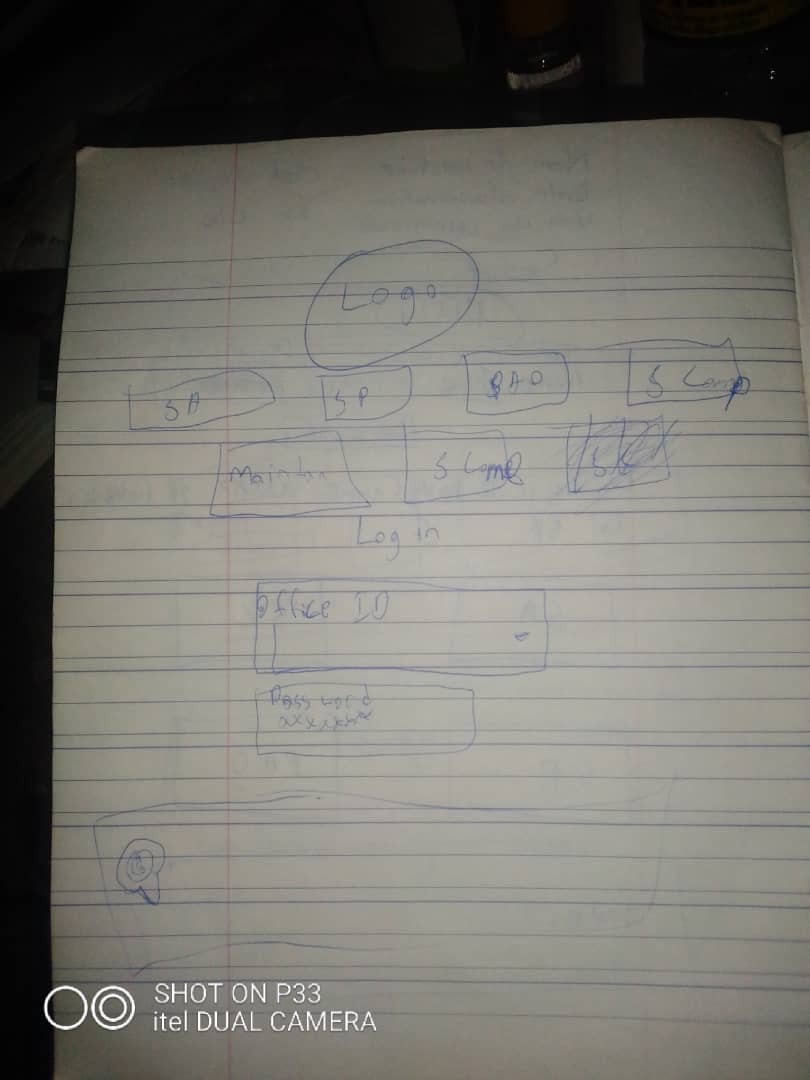 Logo
SA SP BAO S Comp
Maintan S Come
Log in
Office ID
Password
xxxxxxx
SHOT ON P33
itel DUAL CAMERA